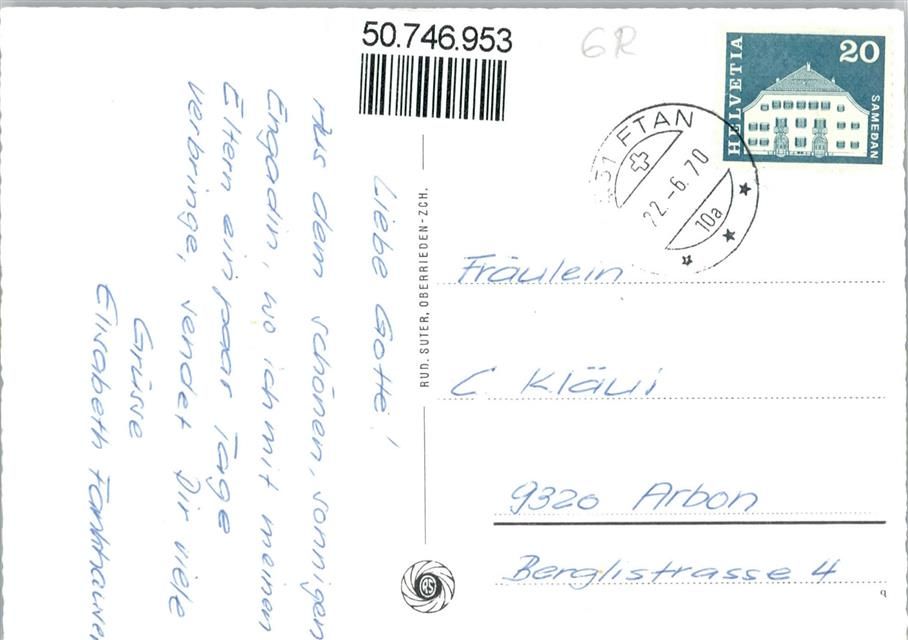 50.746.953
GR
HELVETIA
20
SAMEDAN
FTAN
22.-6.70
10a
RUD. SUTER, OBERRIEDEN-ZCH.
Liebe Gotte!
Aus dem schönen, sonnigen
Engadin, wo ich mit meinen
Eltern ein paar Tage
verbringe, sendet Dir viele
Grüsse
Elisabeth
Fräulein
C Kläui
9320 Arbon
Berglistrasse 4
RS
9